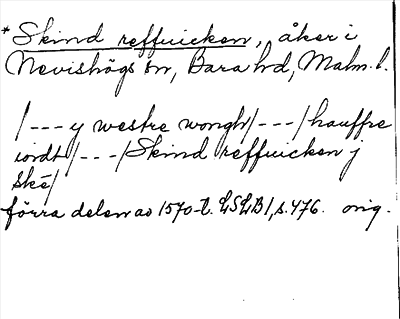 *Skind reffuicken, åker i
Nevishögs sn, Bara hd, Malm. l.
/--- y westre wongh/---/hauffre
iordt/---/Skind reffuicken j
Skē/
förra delen av 1570-t. LSLB I, s. 476. orig.